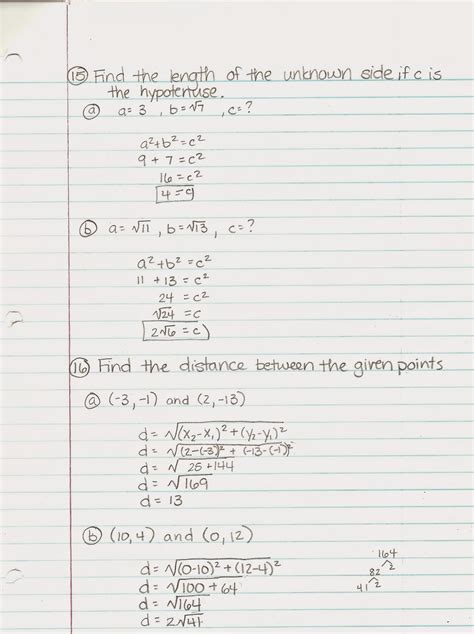 ⑮ Find the length of the unknown side if c is
the hypotenuse.
ⓐ a = 3 , b = √7 , c = ?
a² + b² = c²
9 + 7 = c²
16 = c²
4 = c
ⓑ a = √11 , b = √13 , c = ?
a² + b² = c²
11 + 13 = c²
24 = c²
√24 = c
2√6 = c
⑯ Find the distance between the given points
ⓐ (-3, -1) and (2, -13)
d = √(x₂-x₁)² + (y₂-y₁)²
d = √(2-(-3)² + (-13-(-1))²
d = √25 + 144
d = √169
d = 13
ⓑ (10, 4) and (0, 12)
d = √(0-10)² + (12-4)²
d = √100 + 64
d = √164
d = 2√41
164
82 2
41 2